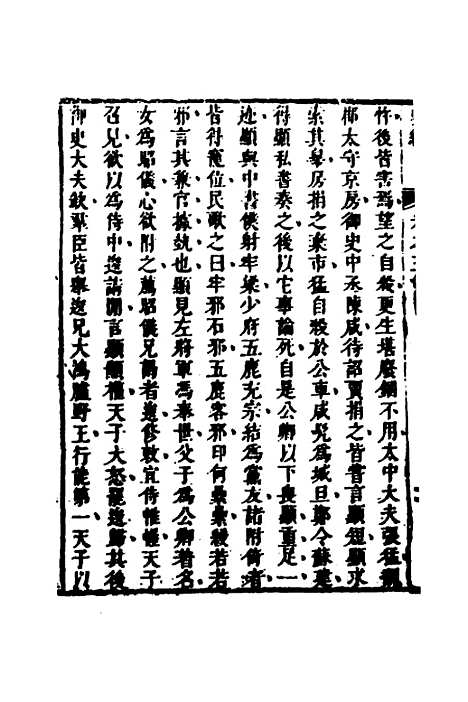 忤後皆害焉望之自殺更生堪廢錮不用太中大夫張猛魏
郡太守京房御史中丞陳咸待詔賈捐之皆嘗言顯短顯求
索其辠房捐之棄市猛自殺於公車咸髠為城旦鄭令蘇建
得顯私書奏之後以它事論死自是公卿以下畏顯重足一
迹顯與中書僕射牢梁少府五鹿充宗結為黨友諸附倚者
皆得寵位民歌之曰牢邪石邪五鹿客邪印何纍纍綬若若
邪言其兼官據埶也顯見左將軍馮奉世父子為公卿著名
女為昭儀心欲附之薦昭儀兄謁者逡修敕宜侍帷幄天子
召見欲以為侍中逡請閒言顯顓權天子大怒罷逡歸其後
御史大夫缺羣臣皆舉逡兄大鴻臚野王行能第一天子以